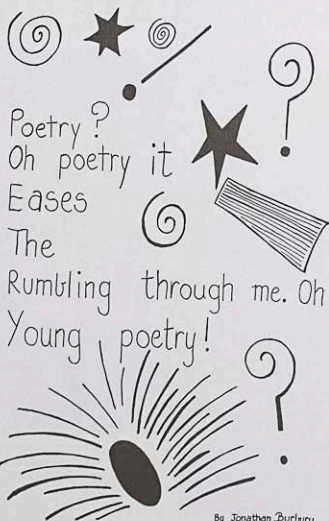 Poetry?
Oh poetry it
Eases
The
Rumbling through me. Oh
Young poetry!
By Jonathan Burbury